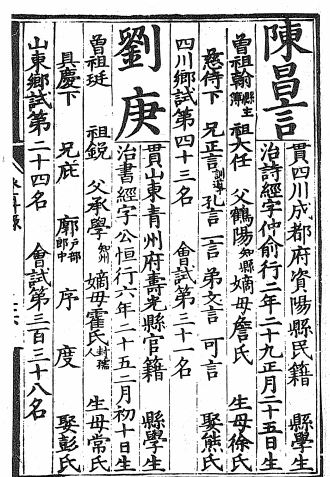 陳昌言
貫四川成都府資陽縣民籍　縣學生
治詩經字仲俞行二年二十九正月二十五日生
曾祖翰縣主簿　祖大任　父鶴陽知縣　嫡母詹氏　生母徐氏
慈侍下　兄正言訓導　孔言　一言　弟文言　可言　娶熊氏
四川鄉試第四十三名　會試第三十一名
劉庚
貫山東青州府壽光縣官籍　縣學生
治書經字公恒行六年二十五二月初十日生
曾祖珽　祖鋭　父承學知州　嫡母霍氏封孺人　生母常氏
具慶下　兄庇　廓戶部郎中　序　度　娶彭氏
山東鄉試第二十四名　會試第三百三十八名